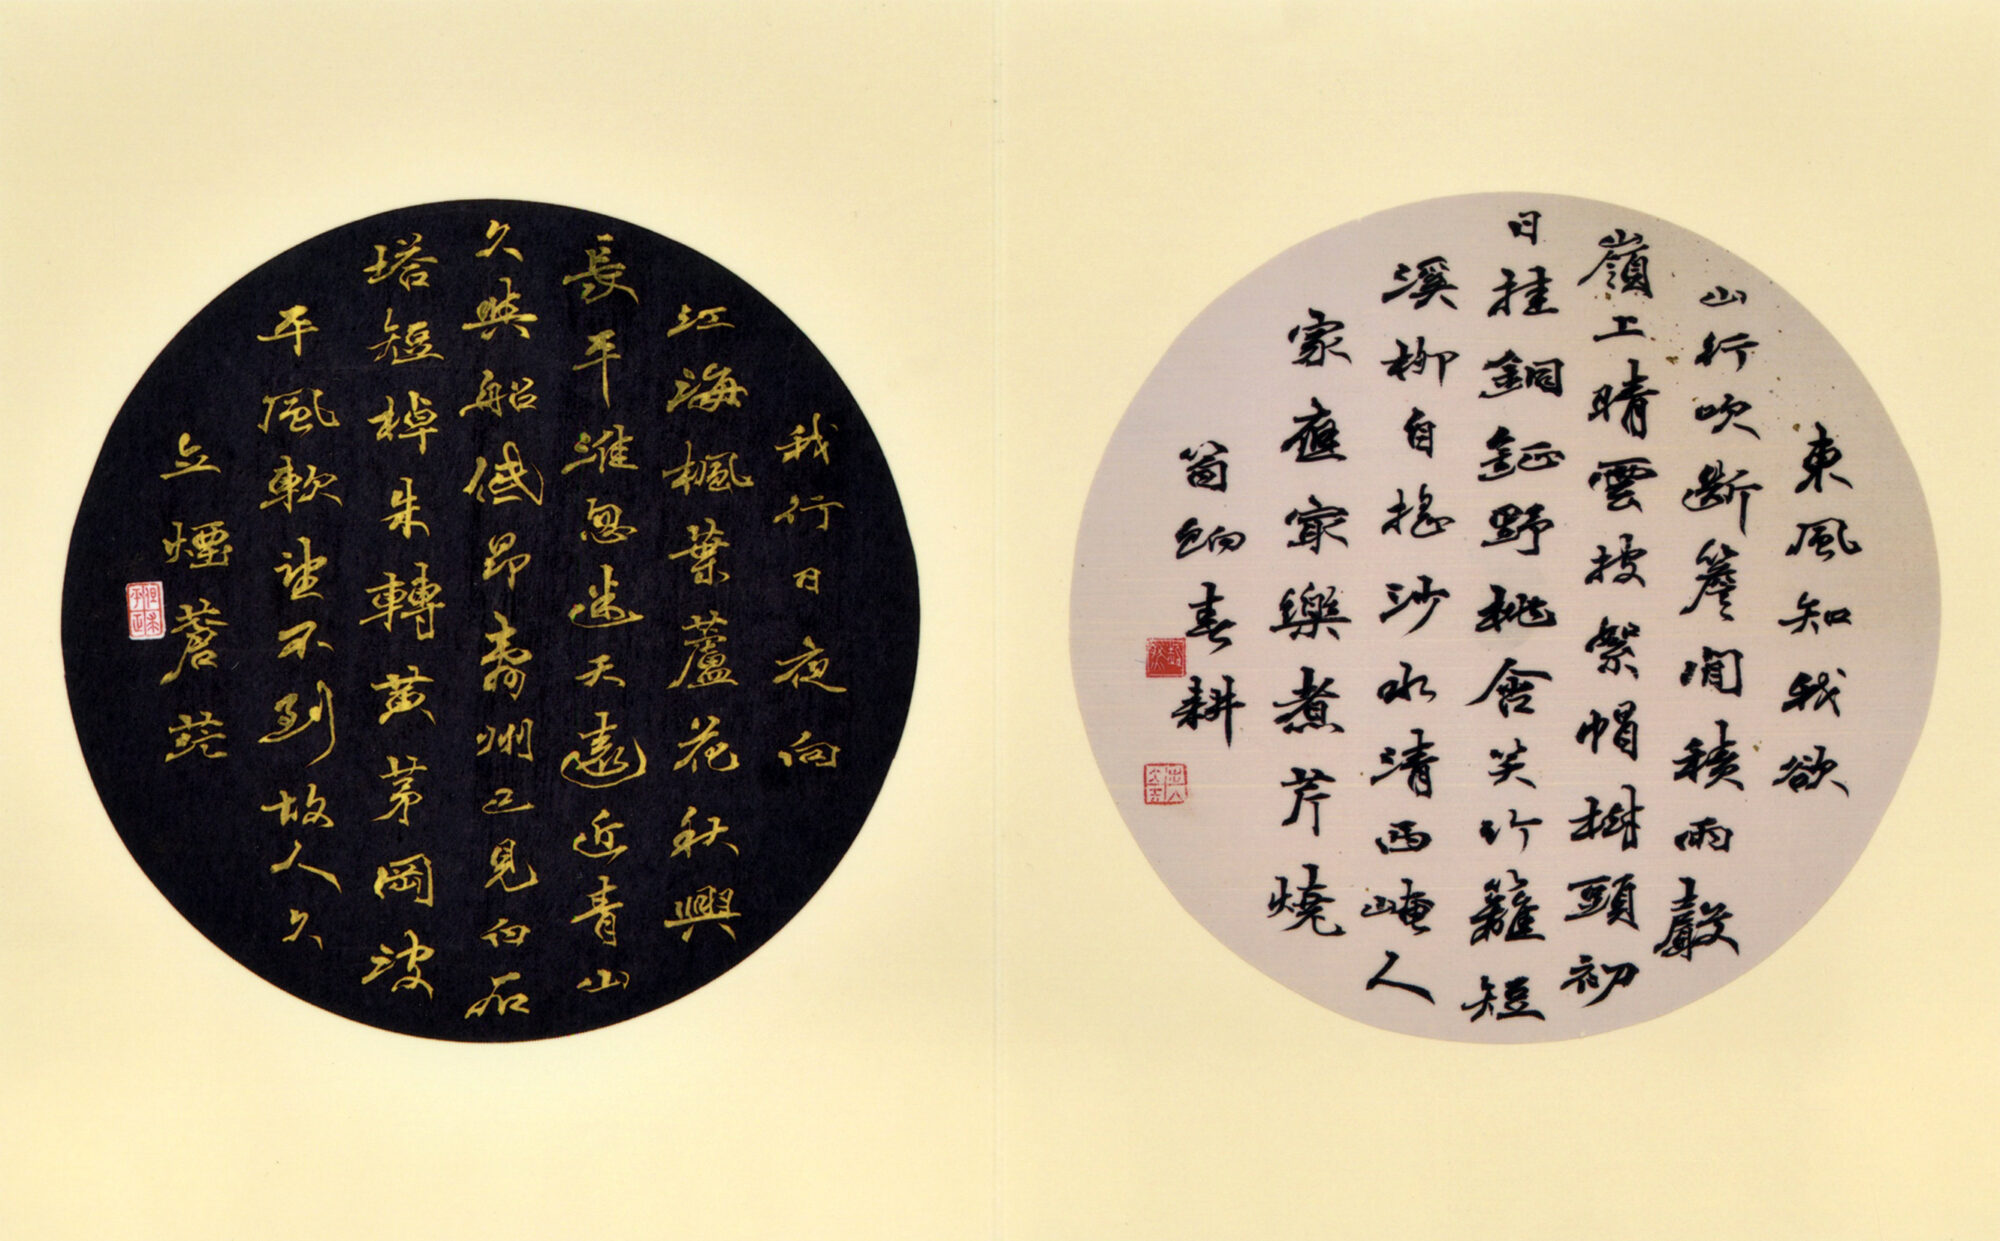 東風知我欲
山行吹斷簷間積雨聲
嶺上晴雲披絮帽樹頭初
日挂銅鉦野桃含笑竹籬短
溪柳自搖沙水清西崦人
家應最樂煮芹燒
筍餉春耕
我行日夜向
江海楓葉蘆花秋興
長平淮忽迷天遠近青山
久與船低昂壽州已見白石
塔短棹未轉黃茅岡波
平風軟望不到故人久
立煙蒼茫